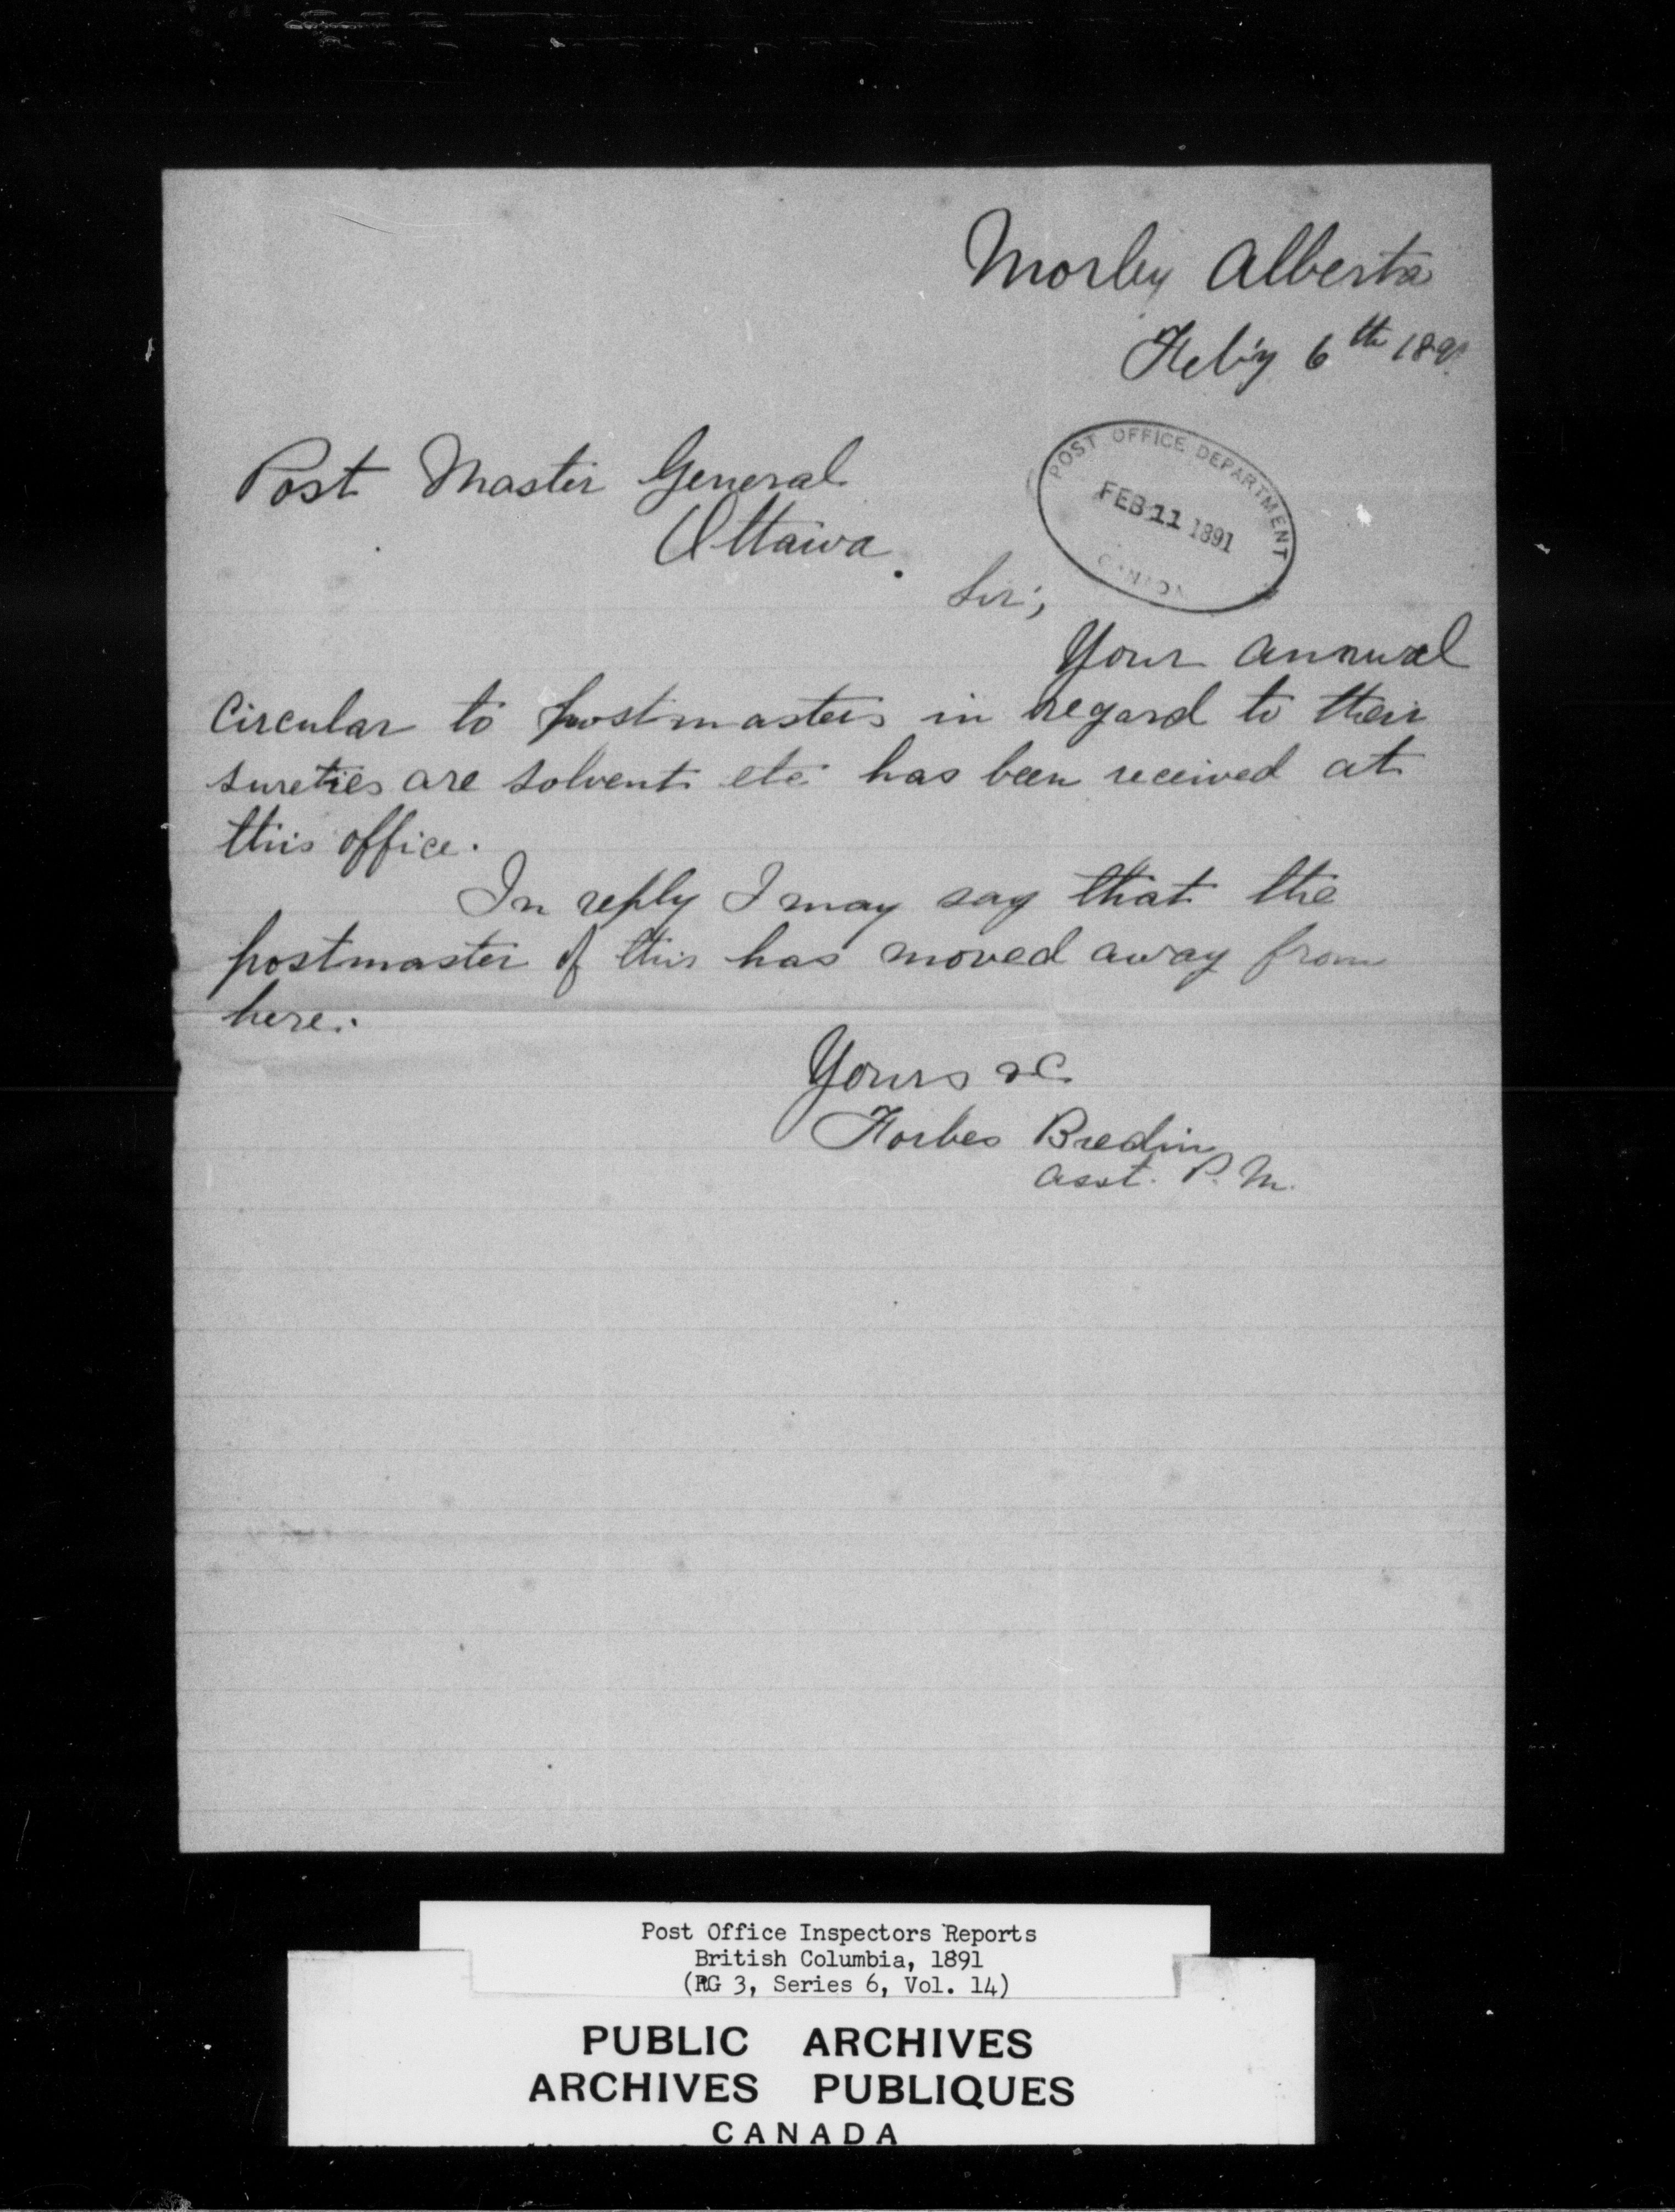 Morley Alberta
Feb'y 6th 1891
Post Master General
Ottawa.
POST OFFICE DEPARTMENT
FEB 11 1891
CANADA
Sir;
Your annual
Circular to postmasters in regard to their
sureties are solvent etc has been received at
this office.
In reply I may say that the
postmaster of this has moved away from
here.
Yours &c
Forbes Bredin
asst. P. M.
Post Office Inspectors Reports
British Columbia, 1891
(RG 3, Series 6, Vol. 14)
PUBLIC ARCHIVES
ARCHIVES PUBLIQUES
CANADA